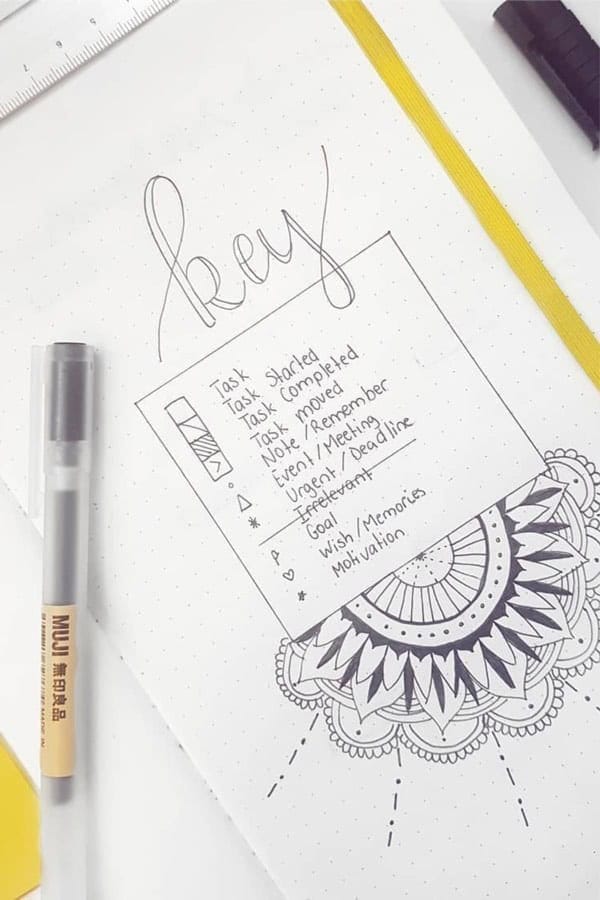 key
Task
Task Started
Task Completed
Task moved
Note/Remember
Event/Meeting
Urgent/Deadline
Irrelevant
Goal
Wish/Memories
Motivation
MUJI 無印良品